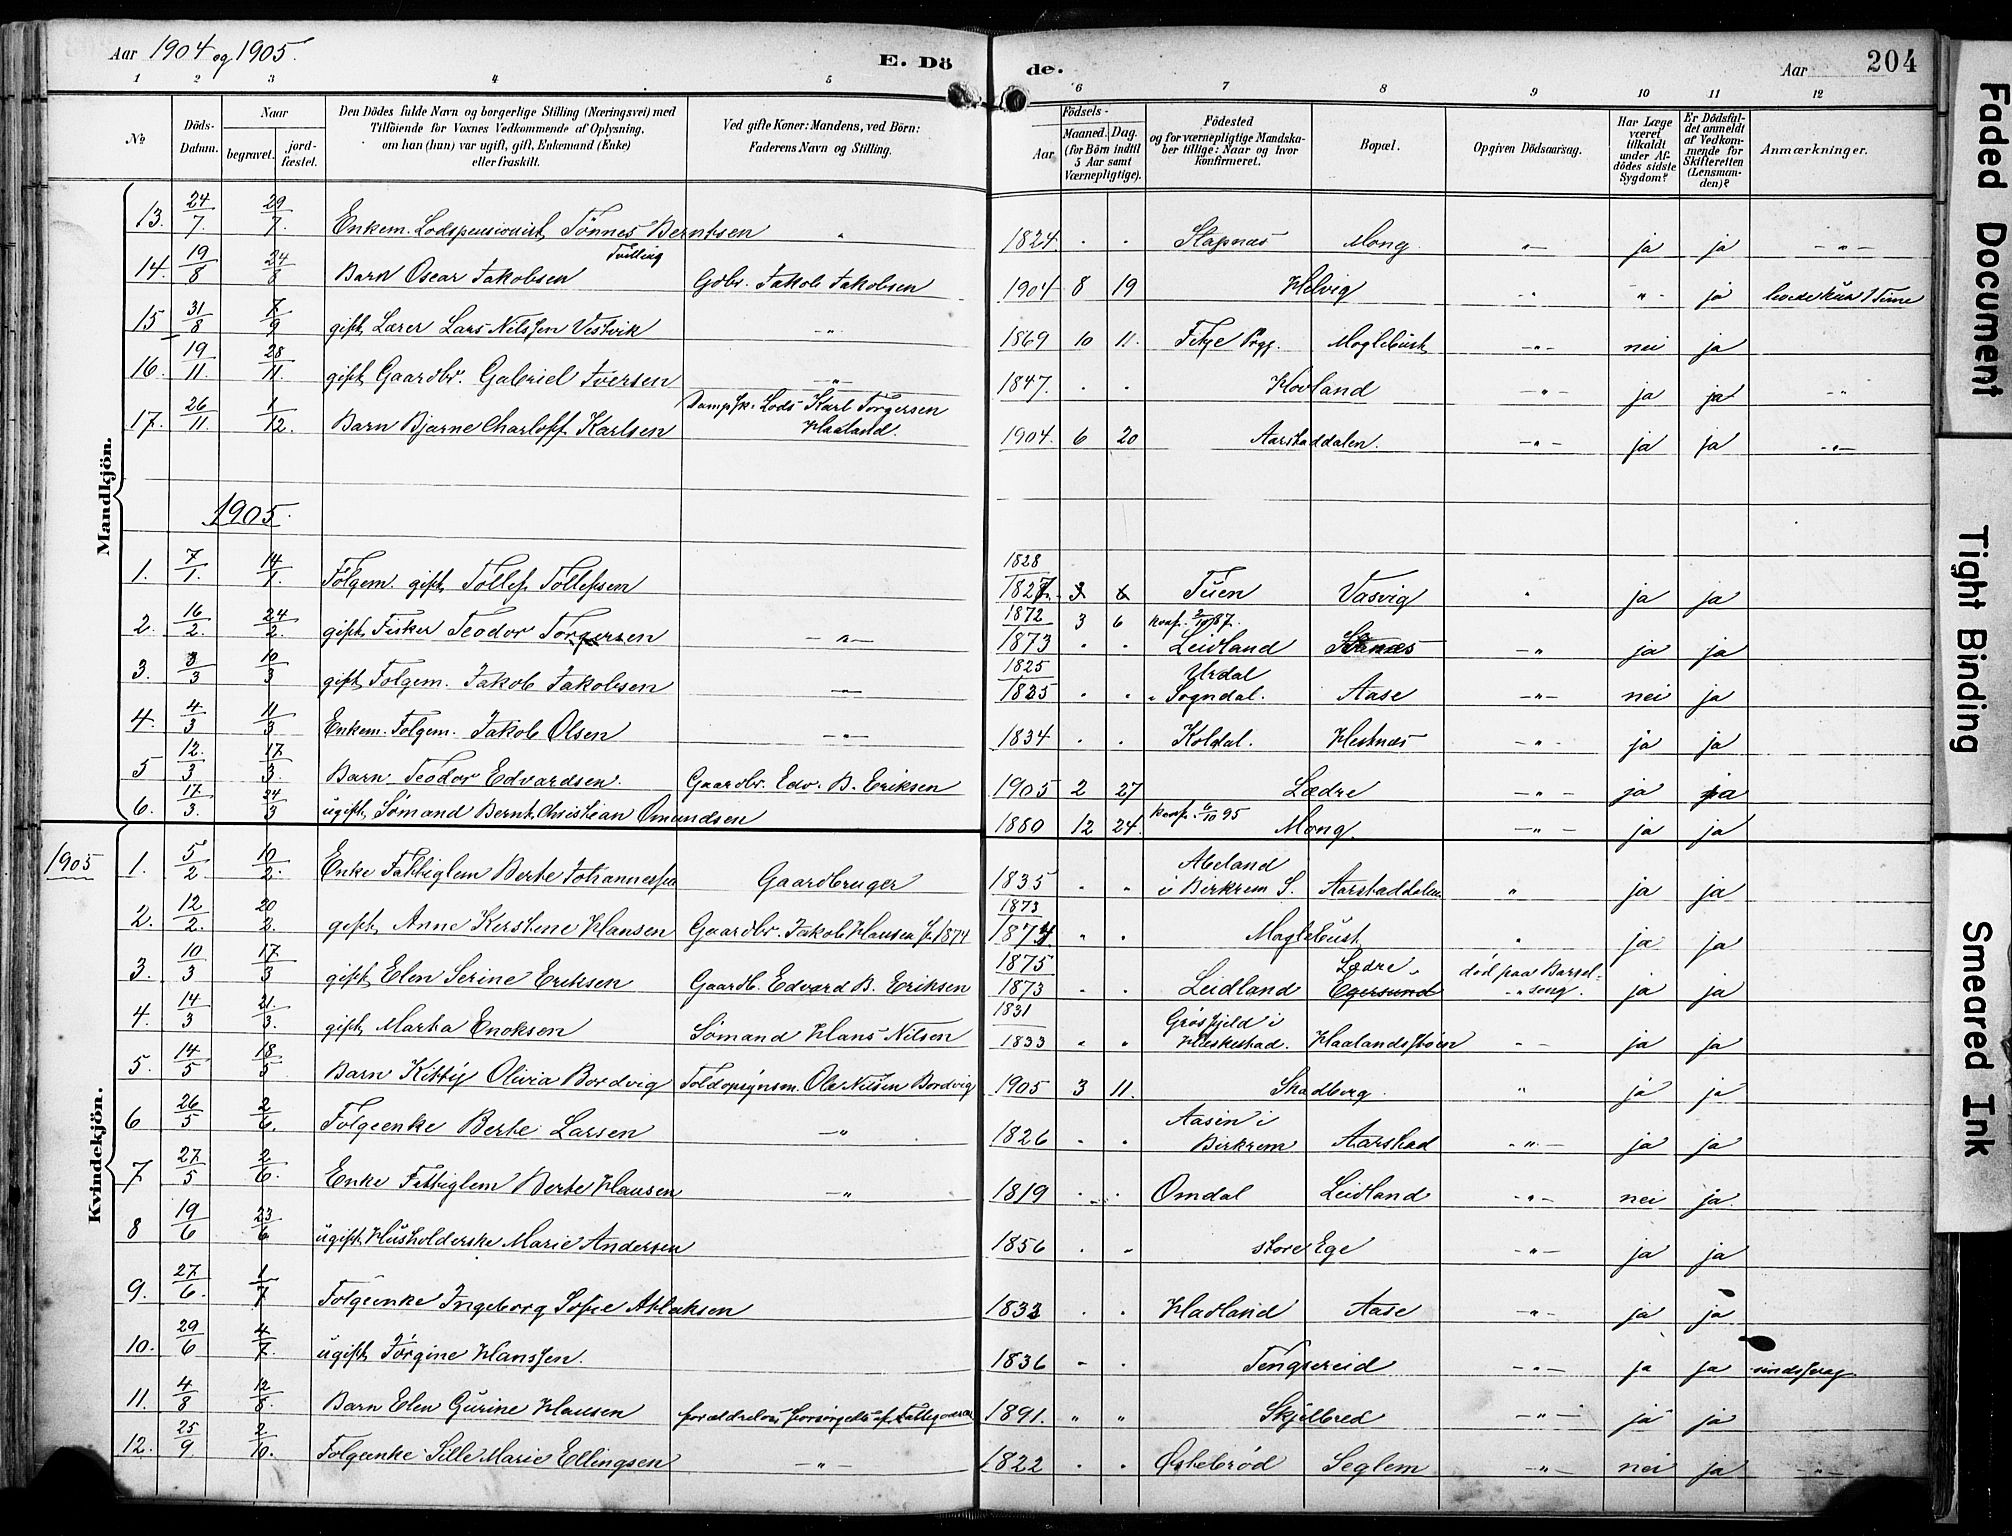 Aar 1904 og 1905.
E. Dö
de.
Aar
204
1 2 3 4 5 6 7 8 9 10 11 12
No
Döds-Datum.
Naar
begravet.
jordfæstet.
Den Dödes fulde Navn og borgerlige Stilling (Næringsvei) med
Tilföiende for Voxnes Vedkommende af Oplysning,
om han (hun) var ugift, gift, Enkemand (Enke)
eller fraskilt.
Ved gifte Koner: Mandens, ved Börn:
Faderens Navn og Stilling.
Födsels-
Aar
Maaned. Dag.
(for Börn indtil
5 Aar samt
Værnepligtige).
Födested
og for værnepligtige Mandskaber tillige: Naar og hvor
konfirmeret.
Bopæl.
Opgiven Dödsaarsag.
Har Læge
været
tilkaldt
under Afdödes sidste
Sygdom?
Er Dödsfaldet anmeldt
af Vedkommende for
Skifteretten
(Lensmanden)?
Anmærkninger.
Mandkjön.
13. 24/7. 29/7. Enkem. Lodspensionist Tönnes Berntsen " 1824. " " Stapnæs Mong " ja ja "
14. 19/8 24/8 Barn Oscar Jakobsen Tvilling Gdbr. Jakob Jakobsen 1904 8 19 Helvig " " ja levede kun 1 Time
15 31/8 7/9 gift Lærer Lars Nilssen Vestvik " 1869 10 11. Fitje Prgj. Maglebust " nei ja
16. 19/11. 28/11. gift Gaardbr. Gabriel Iversen " 1847. " " Hovland " ja ja "
17. 26/11 1/12. Barn Bjarne Charloff Karlsen Dampsk. Lods Karl Torgersen Haaland. 1904. 6 20 Aarstaddalen. " ja ja "
1905.
1. 7/1. 14/1. Fölgem. gift Tollef Tollefsen 1828 1827. 3 6 Tuen Vasvig " ja ja
2. 16/2. 24/2. gift Fisker Teodor Torgersen " 1872 1873 3 6 konf. 2/10 87. Leidland Stanæs " ja ja
3. 3/3 10/3 gift Folgem. Jakob Jakobsen " 1825 1835 " " Urdal Sogndal. Aase " nei ja
4. 4/3 11/3 Enkem. Folgem. Jakob Olsen " 1834 " " Koldal. Hestnæs " ja ja
5 12./3 17/3. Barn Teodor Edvardsen. Gaardbr. Edv. B. Eriksen 1905 2 27 Lædre " ja ja
6. 17/3. 24/3 ugift Sömand Bernt Christian Omundsen 1880 12 24. konf. /10 95 Mong. " ja ja
Kvindekjön.
1905 1. 5/2 10/2. Enke Fattiglem Berte Johannesen Gaardbruger 1835 " " Abeland i Birkrem S. Aarstaddalen " ja ja
2. 12/2. 20/2. gift Anne Kirstine Hansen Gaardbr. Jakob Hansen f. 1874 1873 1874 " " Maglebust " ja ja
3. 10/3 17/3 gift Elen Serine Eriksen Gaardb. Edvard B. Eriksen 1875 1873 " " Leidland Lædre. Egersund död paa Barselseng. ja ja
4. 14/3 21/3. gift Marta Enoksen Sömand Hans Nilsen 1831 1833 " " Grösfjeld i Heskestad. Haalandsstöen " ja ja
5. 14/5 18/5 Barn Kitty Olivia Bordvig Toldopsynsm. Ole Nilsen Bordvig 1905 3 11. Skadberg. " ja ja
6 26/5 2/6. Folgeenke Berte Larsen " 1826 " " Aasen i Birkrem Aarstad " ja ja
7 27/5 2/6. Enke Fattiglem Berte Hansen " 1819 " " Omdal Leidland " nei ja.
8 19/6 23/6 ugift Husholderske Marie Andersen 1856 " " store Ege " ja ja
9. 27/6. 1/7 Folgeenke Ingeborg Sofie Aslaksen 1832 " " Hadland Aase " ja ja
10. 29/6 4/7. ugift Jörgine Hanssen. 1836 " " Tengsereid " ja ja sindssvag
11. 4/8 12/8. Barn Elen Gurine Hansen forældreløs forsørgedes af Fattigvæsen 1891. " " Skjelbred " ja ja
12. 25/9 2/10. Folgeenke Sille Marie Ellingsen " 1822 " " Östebröd Seglem " nei ja "
Faded Document
Tight Binding
Smeared Ink